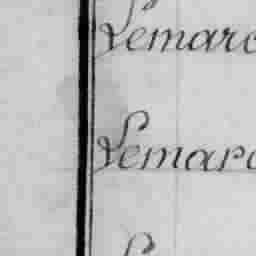 Lemarc
Lemarc